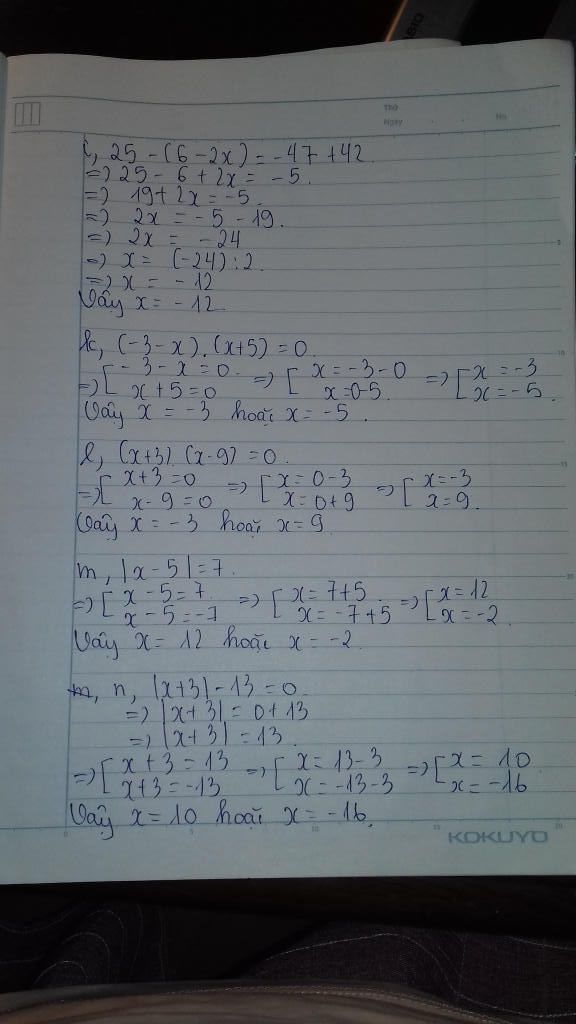 Thứ
Ngày
No.
i, 25 - (6 - 2x) = -47 + 42
=> 25 - 6 + 2x = -5.
=> 19 + 2x = -5.
=> 2x = -5 - 19.
=> 2x = -24
=> x = (-24) : 2.
=> x = -12
Vậy x = -12
k, (-3 - x) . (x+5) = 0.
=> [ -3 - x = 0. => [ x = -3 - 0 => [ x = -3
x + 5 = 0 x = 0-5. x = -5.
Vậy x = -3 hoặc x = -5.
l, (x+3) (x-9) = 0.
=> [ x+3 = 0 => [ x = 0-3 => [ x = -3
x - 9 = 0 x = 0+9 x = 9.
Vậy x = -3 hoặc x = 9.
m, |x - 5| = 7.
=> [ x - 5 = 7. => [ x = 7+5. => [ x = 12
x - 5 = -7 x = -7+5 x = -2.
Vậy x = 12 hoặc x = -2.
m, n, |x+3| - 13 = 0.
=> |x + 3| = 0 + 13
=> |x + 3| = 13.
=> [ x + 3 = 13 => [ x = 13-3 => [ x = 10
x+3 = -13 x = -13-3 x = -16
Vậy x = 10 hoặc x = -16.
KOKUYO